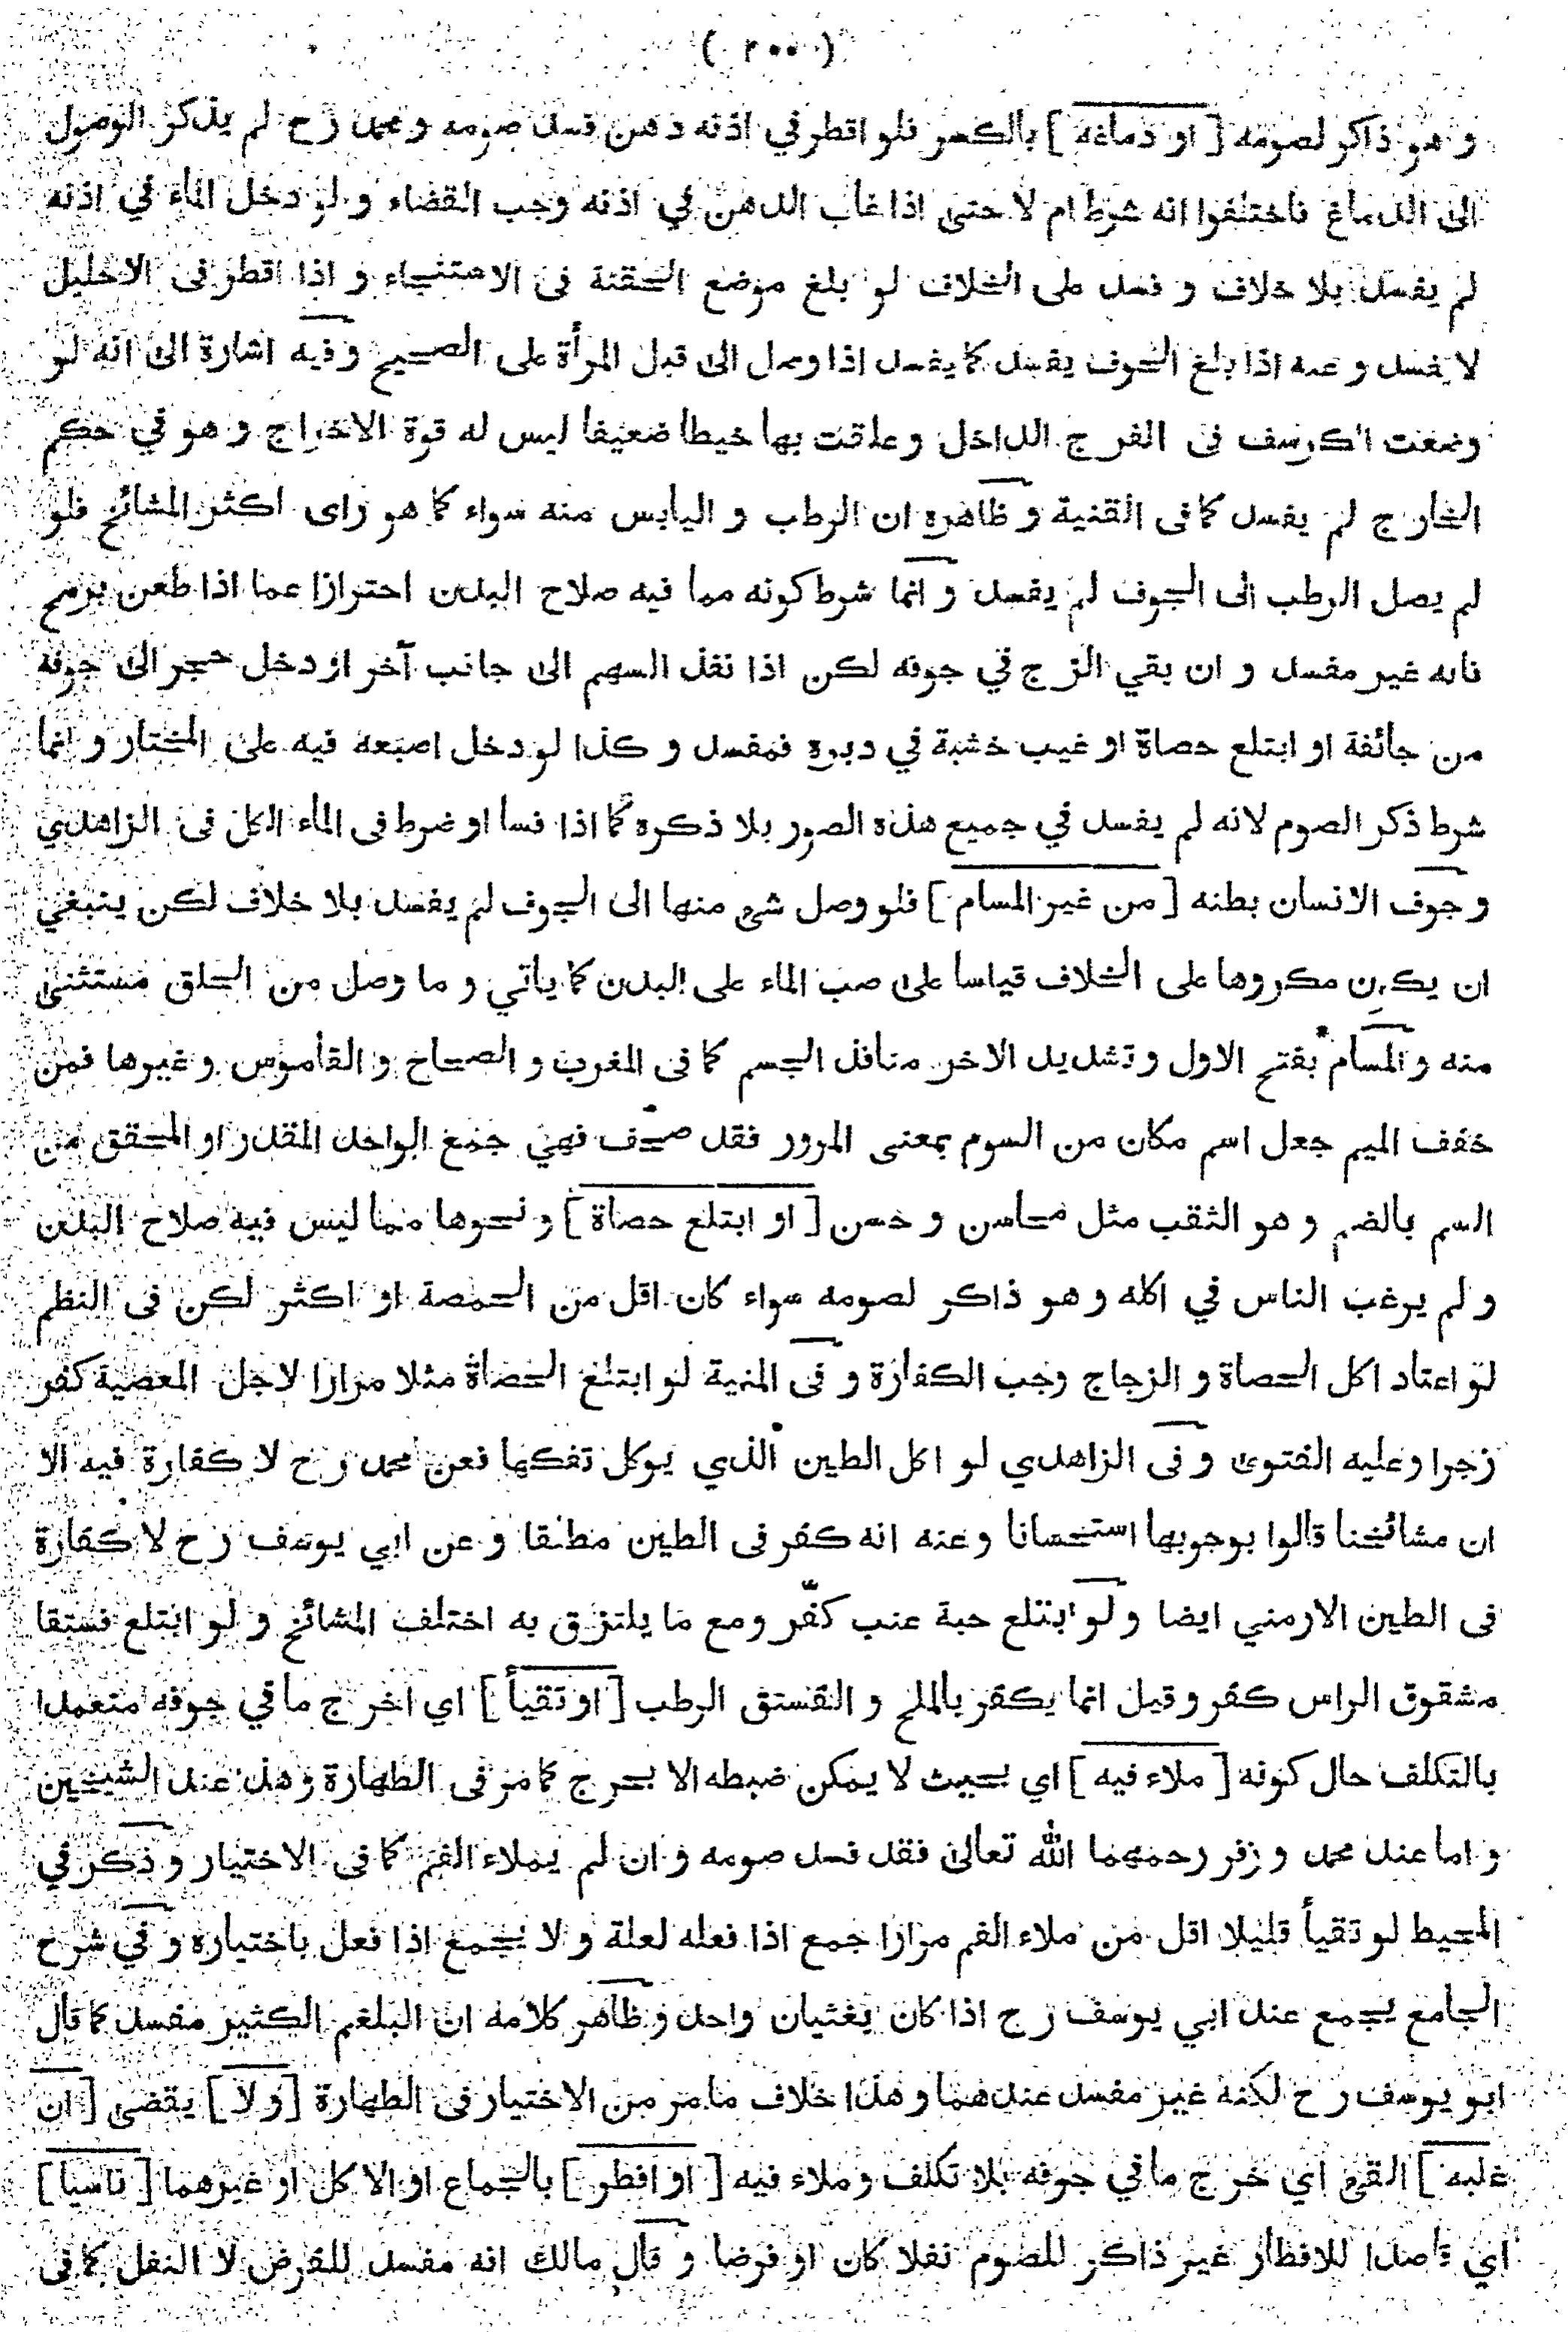 ( ٢٠٠ )
و هو ذاكر لصومه [ او دماغه ] بالكسر فلو اقطر في اذنه دهن فسد صومه و محمد رح لم يذكر الوصول
الى الدماغ فاختلفوا انه شرط ام لا حتى اذا غاب الدهن في اذنه وجب القضاء و لو دخل الماء في اذنه
لم يفسد بلا خلاف و فسد على الخلاف لو بلغ موضع الحقنة فى الاستنجاء و اذا اقطر فى الاحليل
لا يفسد و عنه اذا بلغ الجوف يفسد كما يفسد اذا وصل الى قبل المرأة على الصحيح و فيه اشارة الى انه لو
وضعت الكرسف فى الفرج الداخل و علقت بها خيطا ضعيفا ليس له قوة الاخراج و هو في حكم
الخارج لم يفسد كما فى القنية و ظاهره ان الرطب و اليابس منه سواء كما هو راى اكثر المشائخ فلو
لم يصل الرطب الى الجوف لم يفسد و انما شرط كونه مما فيه صلاح البدن احترازا عما اذا طعن برمح
فانه غير مفسد و ان بقي الزج في جوفه لكن اذا نفذ السهم الى جانب آخر او دخل حجر الى جوفه
من جائفة او ابتلع حصاة او غيب خشبة في دبره فمفسد و كذا لو دخل اصبعه فيه على المختار و انما
شرط ذكر الصوم لانه لم يفسد في جميع هذه الصور بلا ذكره كما اذا فسا او ضرط فى الماء الكل فى الزاهدي
و جوف الانسان بطنه [ من غير المسام ] فلو وصل شئ منها الى الجوف لم يفسد بلا خلاف لكن ينبغي
ان يكون مكروها على الخلاف قياسا على صب الماء على البدن كما ياتي و ما وصل من الحلق مستثنى
منه و المسام بفتح الاول و تشديد الاخر منافذ الجسم كما فى المغرب و الصحاح و القاموس و غيرها فمن
خفف الميم جعل اسم مكان من السوم بمعنى المرور فقد صحف فهي جمع الواحد المقدر او المحقق من
السم بالضم و هو الثقب مثل محاسن و حسن [ او ابتلع حصاة ] و نحوها مما ليس فيه صلاح البدن
و لم يرغب الناس في اكله و هو ذاكر لصومه سواء كان اقل من الحمصة او اكثر لكن فى النظم
لو اعتاد اكل الحصاة و الزجاج وجب الكفارة و فى المنية لو ابتلع الحصاة مثلا مرارا لاجل المعصية كفر
زجرا و عليه الفتوى و فى الزاهدي لو اكل الطين الذي يوكل تفكها فعن محمد رح لا كفارة فيه الا
ان مشائخنا قالوا بوجوبها استحسانا و عنه انه كفر فى الطين مطلقا و عن ابي يوسف رح لا كفارة
فى الطين الارمني ايضا و لو ابتلع حبة عنب كفّر و مع ما يلتزق به اختلف المشائخ و لو ابتلع فستقا
مشقوق الراس كفر و قيل انما يكفر بالملح و الفستق الرطب [ او تقيأ ] اي اخرج ما في جوفه متعمدا
بالتكلف حال كونه [ ملاء فيه ] اي بحيث لا يمكن ضبطه الا بحرج كما مر فى الطهارة و هذا عند الشيخين
و اما عند محمد و زفر رحمهما الله تعالى فقد فسد صومه و ان لم يملاء الفم كما فى الاختيار و ذكر في
المحيط لو تقيأ قليلا اقل من ملاء الفم مرارا جمع اذا فعله لعلة و لا يجمع اذا فعل باختياره و في شرح
الجامع يجمع عند ابي يوسف رح اذا كان بغثيان واحد و ظاهر كلامه ان البلغم الكثير مفسد كما قال
ابو يوسف رح لكنه غير مفسد عندهما و هذا خلاف ما مر من الاختيار فى الطهارة [ و لا ] يقضى [ ان
غلبه ] القئ اي خرج ما في جوفه بلا تكلف و ملاء فيه [ او افطر ] بالجماع او الاكل او غيرهما [ ناسيا ]
اي قاصدا للافطار غير ذاكر للصوم نفلا كان او فرضا و قال مالك انه مفسد للفرض لا النفل كما فى